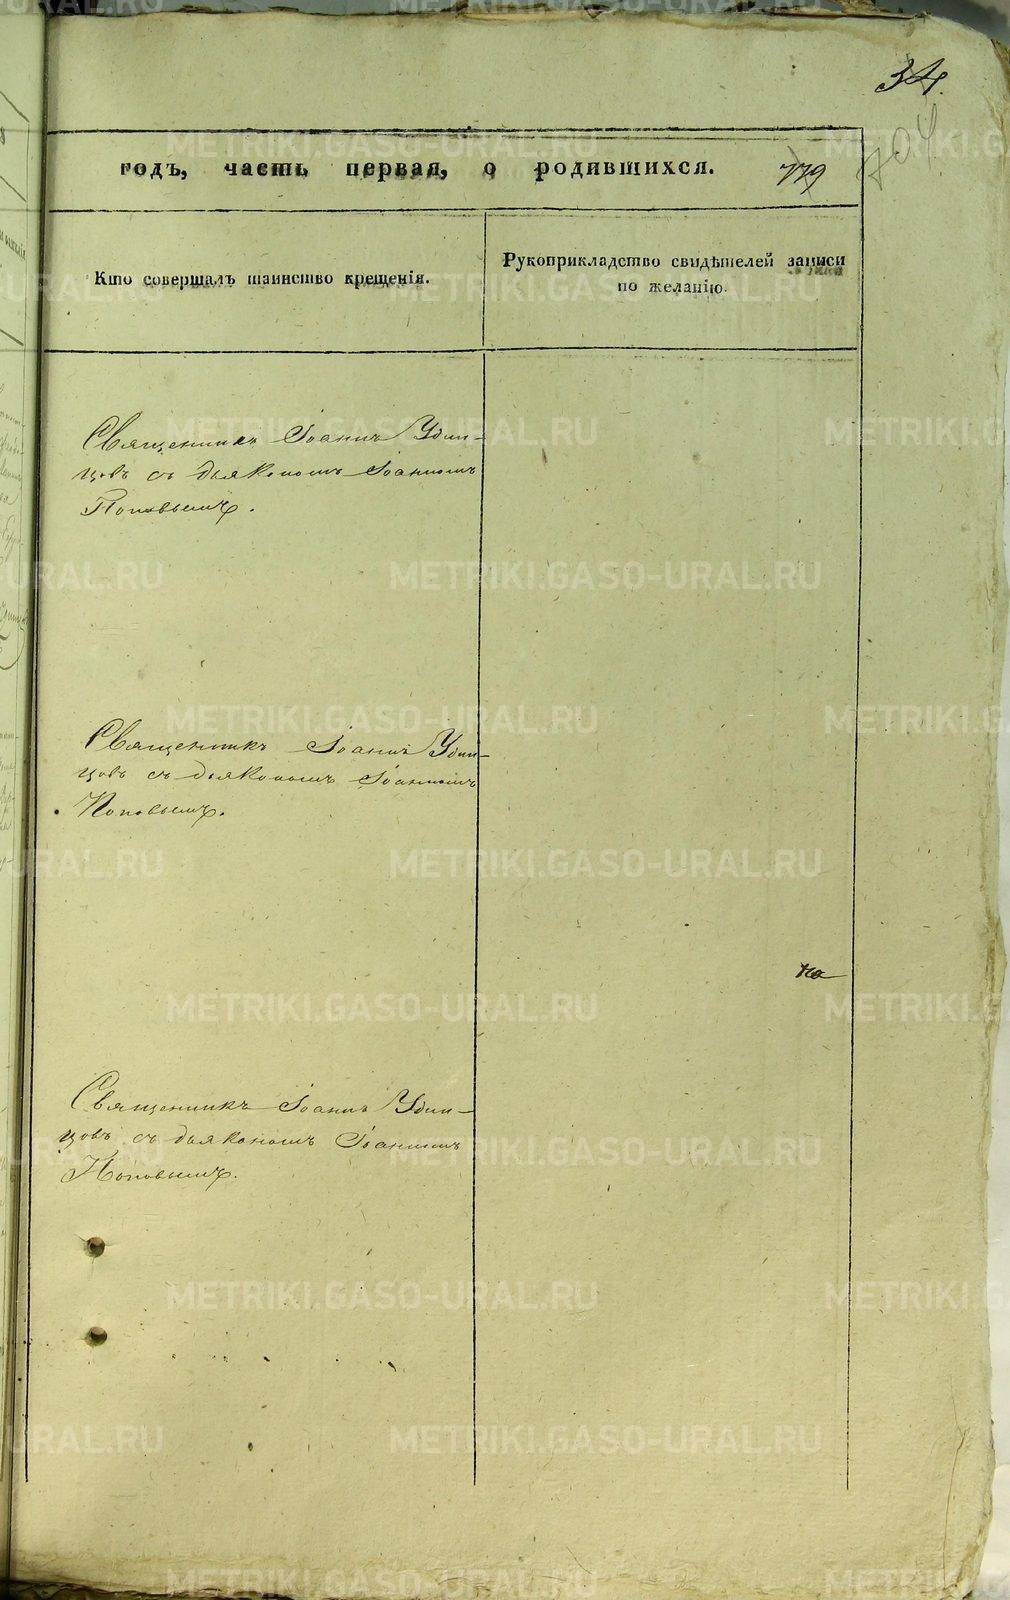 34.
704
годъ, часть первая, о родившихся. 779
Кто совершалъ таинство крещенія.
Рукоприкладство свидѣтелей записи
по желанію.
Священникъ Іоаннъ Удин-
цовъ съ дьякономъ Іоанномъ
Поповымъ.
Священникъ Іоаннъ Удин-
цовъ съ дьякономъ Іоанномъ
Поповымъ.
на
Священникъ Іоаннъ Удин-
цовъ съ дьякономъ Іоанномъ
Поповымъ.
METRIKI.GASO-URAL.RU